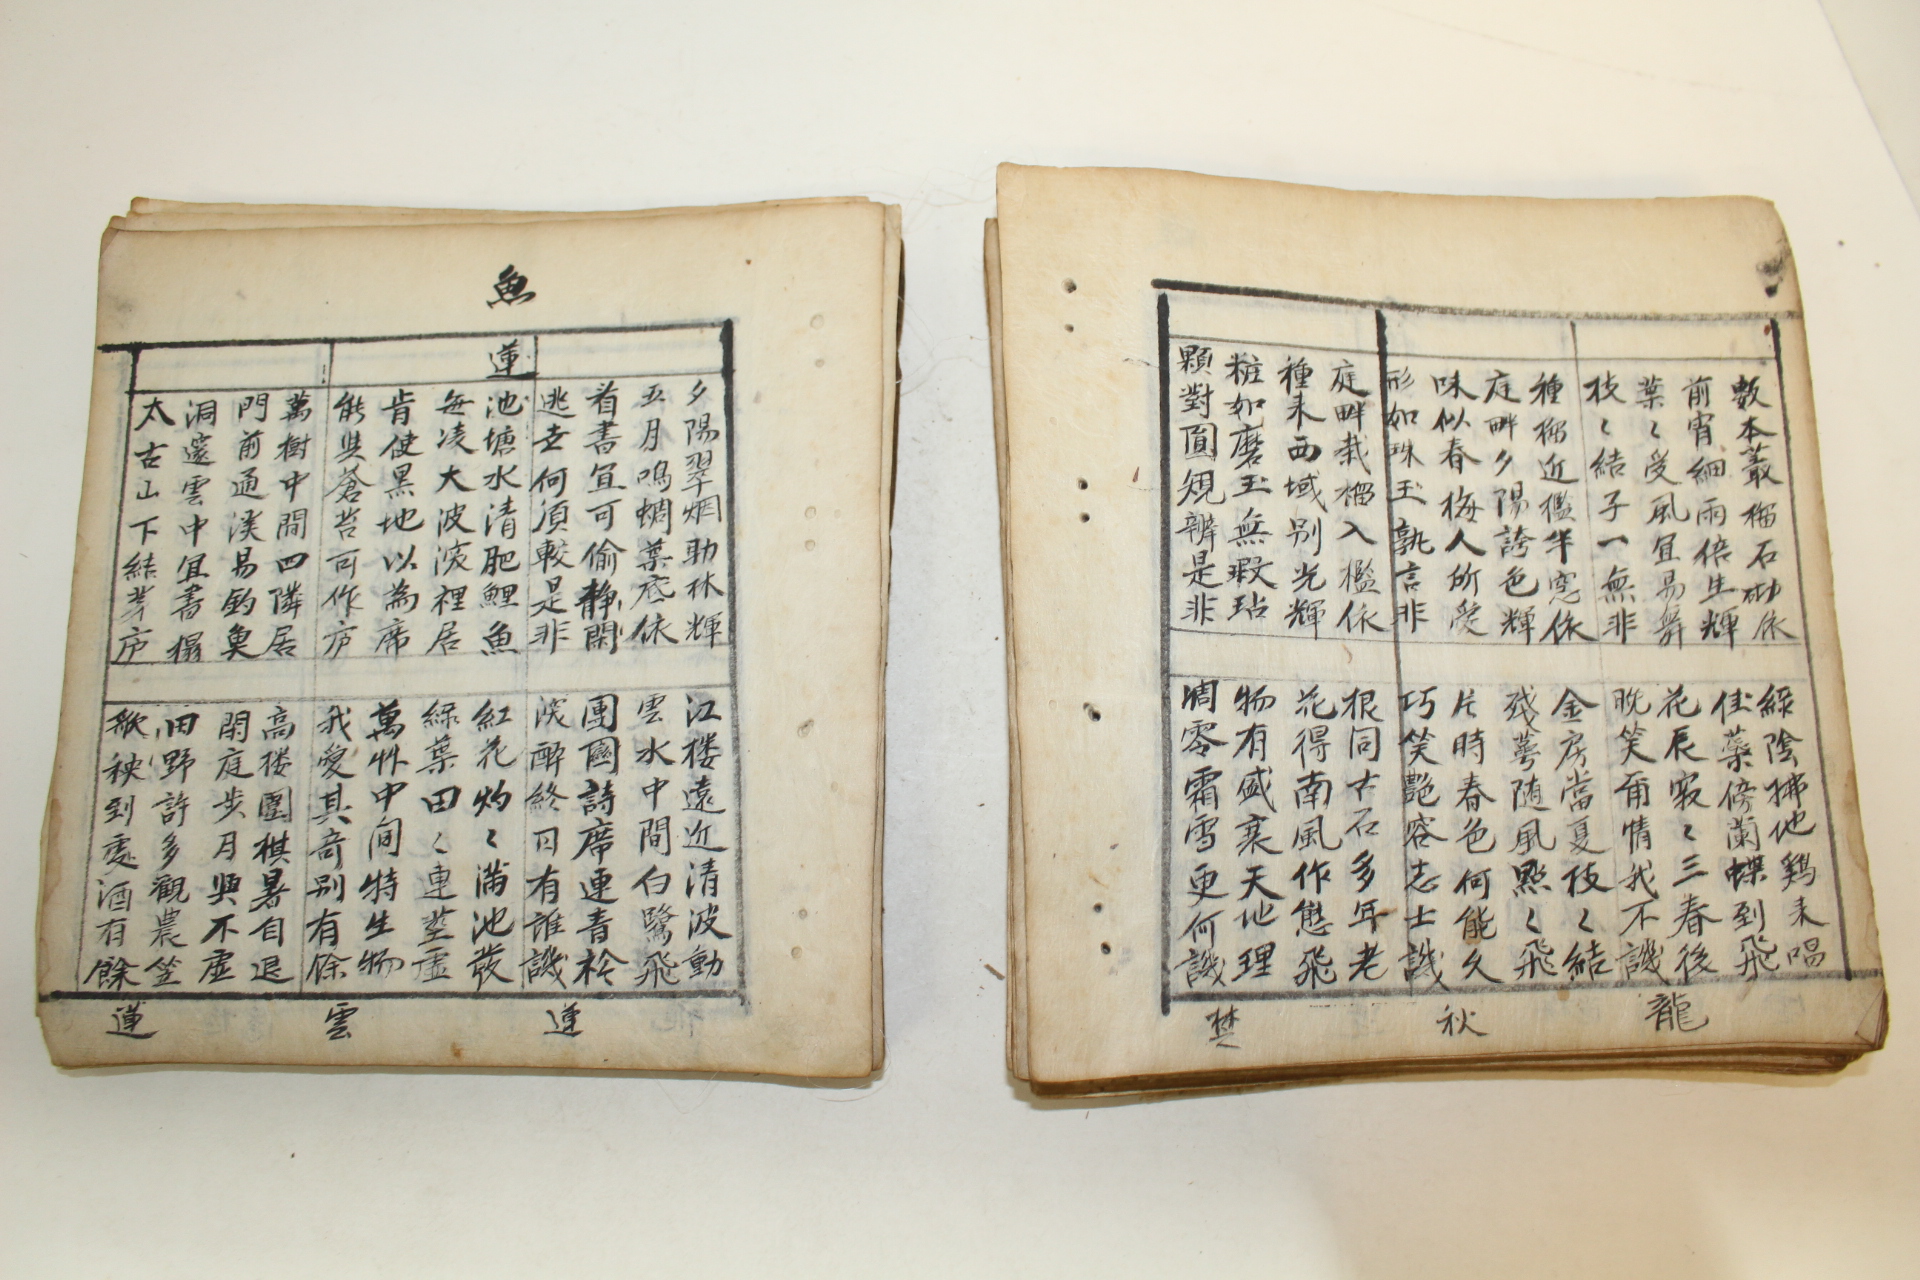 數本叢榴石砌依
綠陰拂地鷄来唱
前宵細雨倍生輝
佳藥傍蘭蝶到飛
葉〻受風宜易舞
花辰寂〻三春後
枝〻結子一無非
晩笑爾情我不譏
種榴近檻半窓依
金房當夏枝〻結
庭畔夕陽誇色輝
残萼随風點〻飛
味似春梅人所愛
片時春色何能久
形如珠玉孰言非
巧笑艶容志士譏
庭畔栽榴入檻依
根同古石多年老
種来西域别光輝
花得南風作態飛
粧如磨玉無瑕玷
物有盛衰天地理
顆對圓規辨是非
凋零霜雪更何譏
龍
秋
魚
蓮
夕陽翠烟助林輝
江楼遠近清波動
五月鳴蜩葉底依
雲水中間白鷺飛
看書宜可偷静閑
團圓詩席連青衿
逃世何須較是非
浅酔終日有誰譏
池塘水清肥鯉魚
紅花灼〻滿池發
每凌大波裡居
綠葉田〻連莖虛
肯使黑地以為席
萬卉中间特生物
能與蒼苔可作庐
我愛其奇别有餘
萬樹中間四隣居
高楼圍棋暑自退
門前通渓易釣魚
閑庭步月興不虛
洞邃雲中宜書榻
田野許多觀農笠
太古山下結茅庐
秧到處酒有餘
蓮
雲
蓮